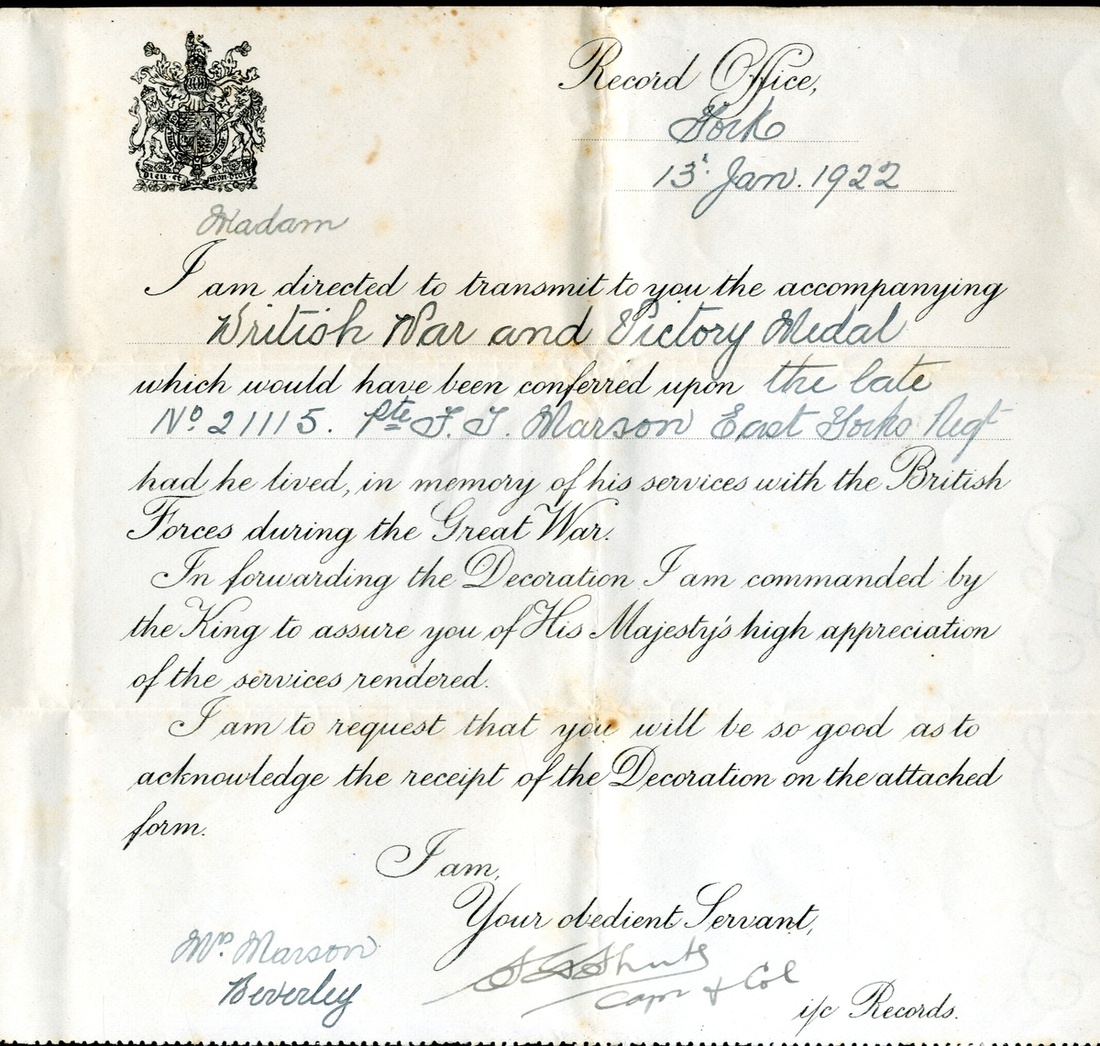 Dieu et mon droit
Record Office,
York
13. Jan. 1922
Madam
I am directed to transmit to you the accompanying
British War and Victory Medal
which would have been conferred upon the late
No 21115. Pte J. J. Marson East Yorks Regt
had he lived, in memory of his services with the British
Forces during the Great War.
In forwarding the Decoration I am commanded by
the King to assure you of His Majesty's high appreciation
of the services rendered.
I am to request that you will be so good as to
acknowledge the receipt of the Decoration on the attached
form.
I am,
Your obedient Servant,
Mrs. Marson
Beverley
Col
i/c Records.